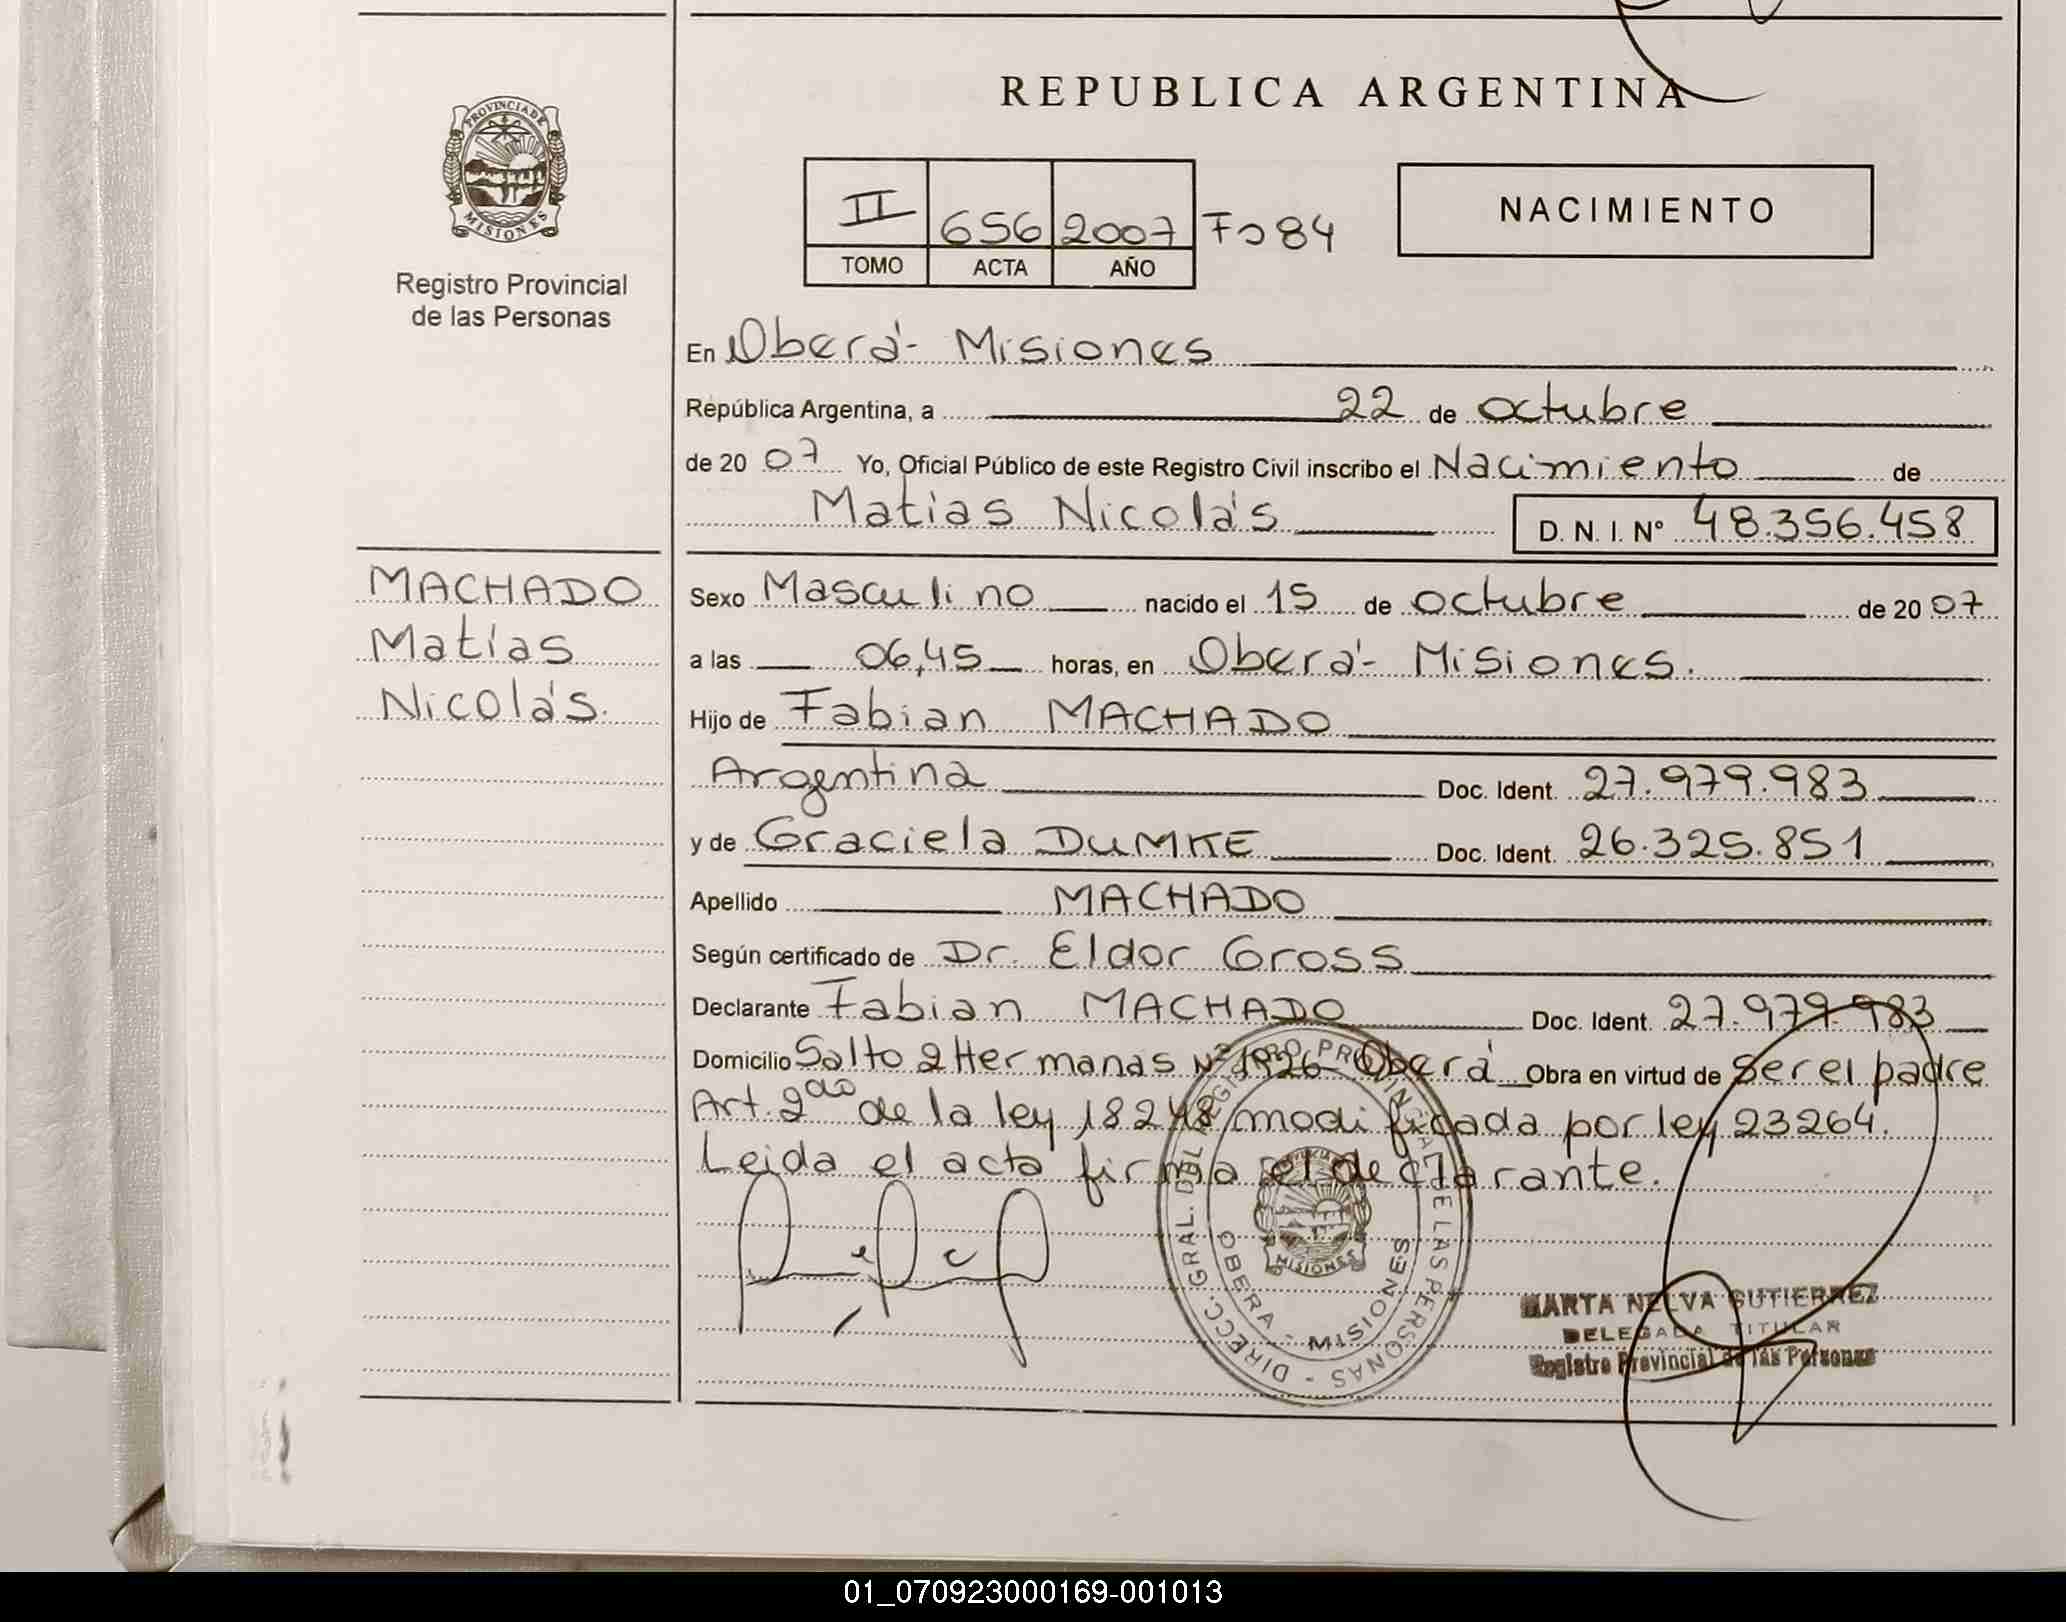 REPUBLICA ARGENTINA
PROVINCIA DE
MISIONES
Registro Provincial
de las Personas
II 656 2007 Fo 84
TOMO ACTA AÑO
NACIMIENTO
En Oberá - Misiones
República Argentina, a 22 de octubre
de 20 07 Yo, Oficial Público de este Registro Civil inscribo el Nacimiento de
Matías Nicolás D. N. I. Nº 48.356.458
MACHADO
Matías
Nicolás.
Sexo Masculino nacido el 15 de octubre de 20 07
a las 06,45 horas, en Oberá - Misiones.
Hijo de Fabian MACHADO
Argentina Doc. Ident. 27.979.983
y de Graciela DUMKE Doc. Ident. 26.325.851
Apellido MACHADO
Según certificado de Dr. Eldor Gross
Declarante Fabian MACHADO Doc. Ident. 27.979.983
Domicilio Salto 2 Hermanas Nº 1926 - Oberá Obra en virtud de ser el padre
Art. 2do de la ley 18248 modificada por ley 23264.
Leida el acta firma el declarante.
DIRECC. GRAL. DEL REGISTRO PROVINCIAL DE LAS PERSONAS -
OBERA - MISIONES
MISIONES
MARTA NELVA GUTIERREZ
DELEGADA TITULAR
Registro Provincial de las Personas
01_070923000169-001013